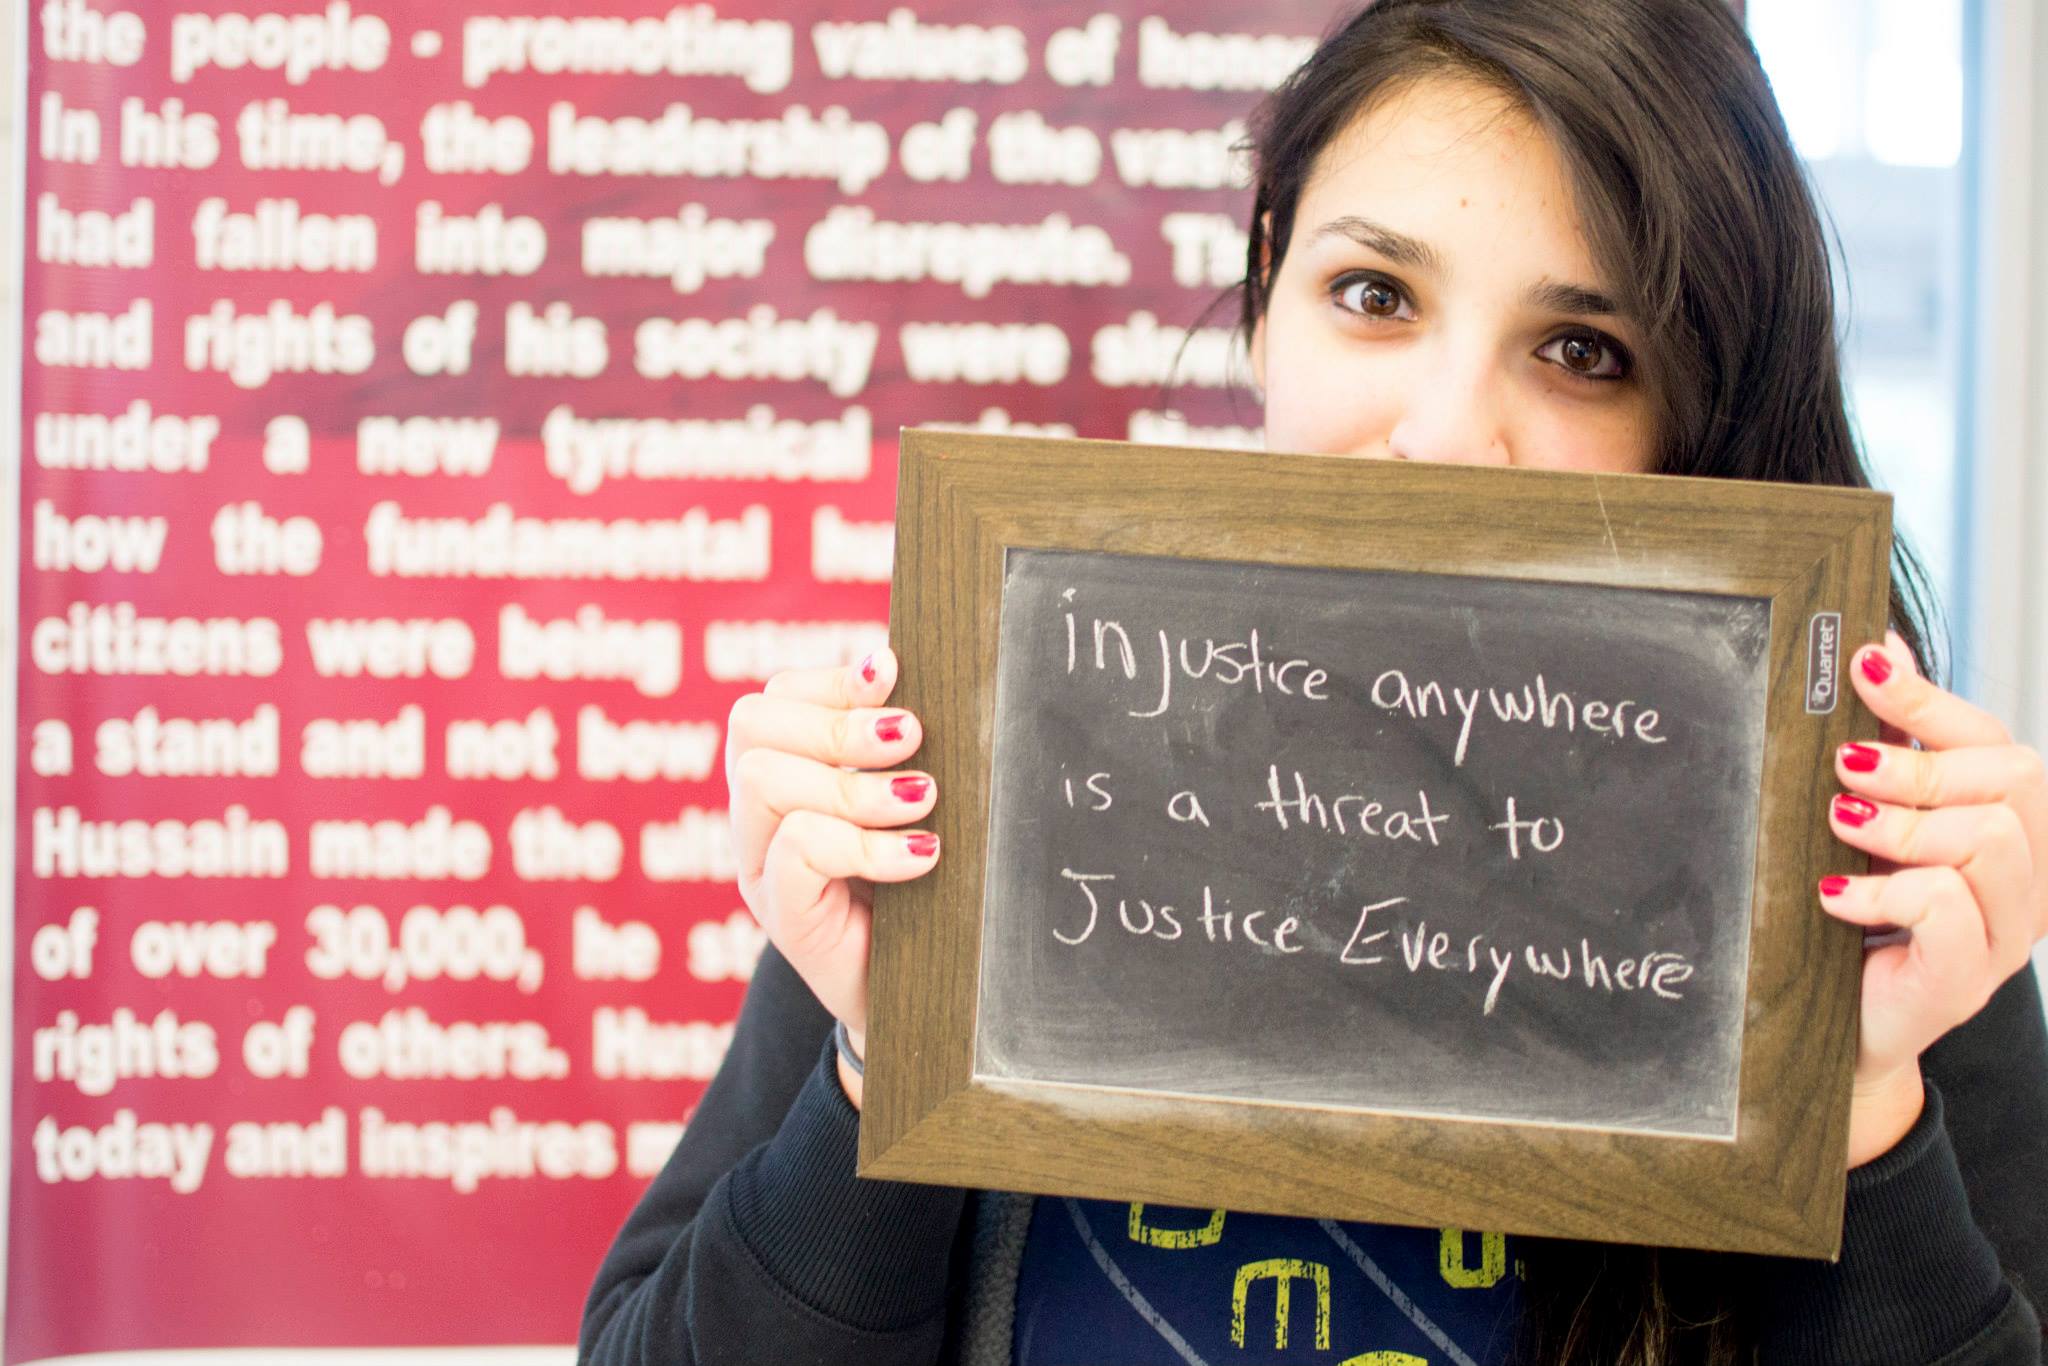 the people - promoting values of
In his time, the leadership of the vast
had fallen into major disrepute.
and rights of his society were
under a new tyrannical
how the fundamental
citizens were being
a stand and not bow
Hussain made the
of over 30,000, he
rights of others.
today and inspires
injustice anywhere
is a threat to
Justice Everywhere
Quartet